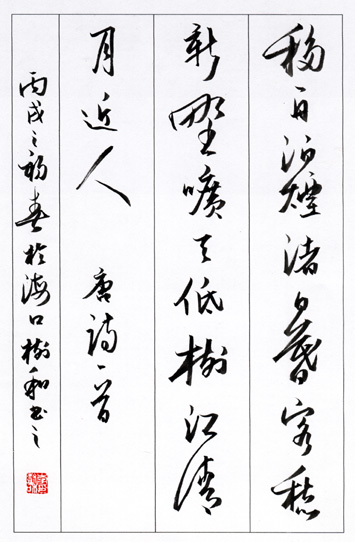 移舟泊煙渚日暮客愁
新野曠天低樹江清
月近人 唐詩一首
丙戌之初春於海口樹和書之